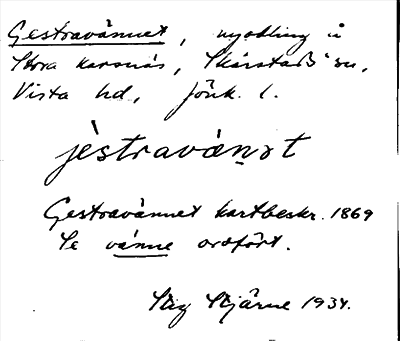 Gestravännet, nyodling å
Stora Karsnäs, Skärstads sn,
Vista hd, Jönk. l.
jèstravànət
Gestravännet kartbeskr. 1869
Se vänne ordfört.
Stig Stjärne 1934.